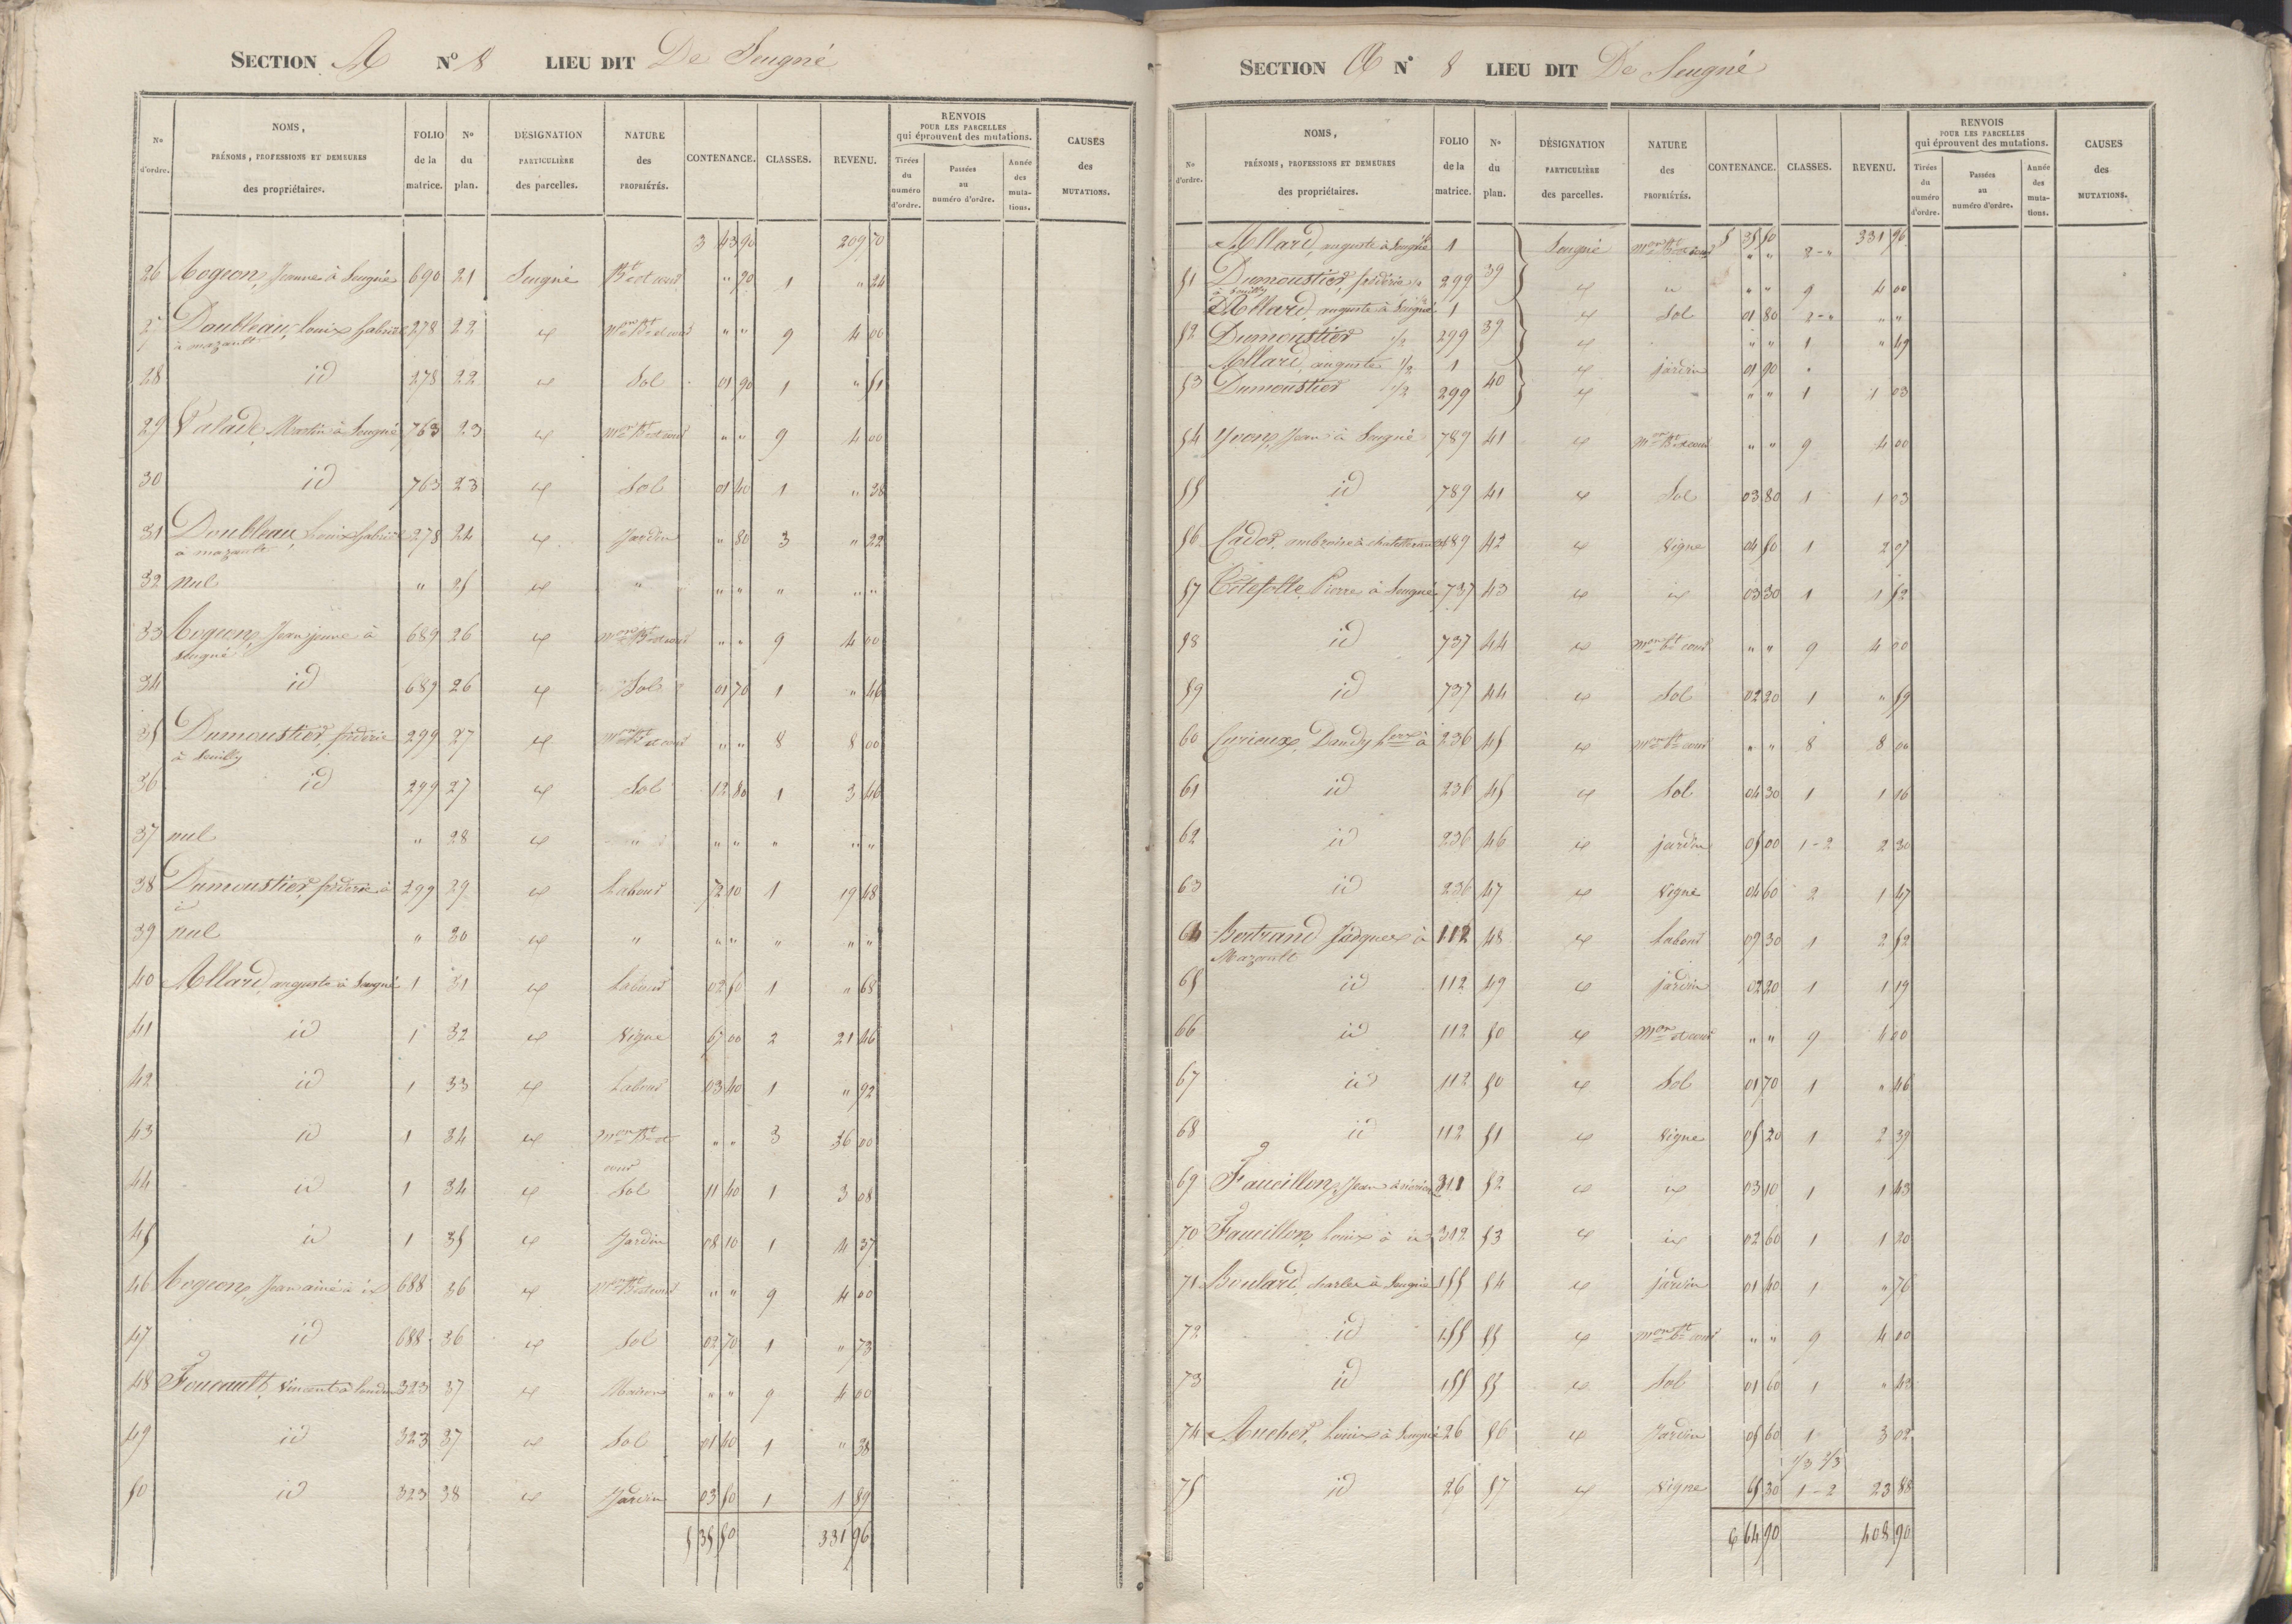 SECTION A N° 8 LIEU DIT De Seugné
N° d'ordre. | NOMS, PRÉNOMS, PROFESSIONS ET DEMEURES des propriétaires. | FOLIO de la matrice. | N° du plan. | DÉSIGNATION PARTICULIÈRE des parcelles. | NATURE des PROPRIÉTÉS. | CONTENANCE. | CLASSES. | REVENU. | RENVOIS POUR LES PARCELLES qui éprouvent des mutations. | Tirées du numéro d'ordre. | Passées au numéro d'ordre. | Année des muta-tions. | CAUSES des MUTATIONS.
3 43 90 209 70
26 Jeanne à Seugné 690 21 Seugné Bt et cour " 90 1 " 24
27 Doubleau, Louis Gabriel à mazault 278 22 id mon Bt et cour " " 9 4 00
28 id 278 22 id Sol 01 90 1 " 51
29 Valade Martin à Seugné 763 23 id mon Bt et cour " " 9 4 00
30 id 763 23 id Sol 01 40 1 " 38
31 Doubleau Louis Gabriel à mazault 278 24 id Jardin " 80 3 " 22
32 nul " 25 id " " " " " "
33 Jean jeune à Seugné 689 26 id mon Bt et cour " " 9 4 00
34 id 689 26 id Sol 01 70 1 " 46
35 Dumoustier, fréderic à 299 27 id mon Bt et cour " " 8 8 00
36 id 299 27 id Sol 12 80 1 3 46
37 nul " 28 id " " " " " "
38 Dumoustier, fréderic à id 299 29 id Labour 72 10 1 19 48
39 nul " 30 id " " " " " "
40 Allard, auguste à Seugné 1 31 id Labour 02 50 1 " 68
41 id 1 32 id Vigne 67 00 2 21 46
42 id 1 33 id Labour 03 40 1 " 92
43 id 1 34 id mon Bt et cour " " 3 36 00
44 id 1 34 id Sol 11 40 1 3 08
45 id 1 35 id Jardin 08 10 1 4 37
46 Jean ainé à id 688 36 id mon Bt et cour " " 9 4 00
47 id 688 36 id Sol 02 70 1 " 73
48 Foucault, Vincent à Loudun 323 37 id Maison " " 9 4 00
49 id 323 37 id Sol 01 40 1 " 38
50 id 323 38 id Jardin 03 50 1 1 89
5 35 50 331 96
SECTION A N° 8 LIEU DIT De Seugné
N° d'ordre. | NOMS, PRÉNOMS, PROFESSIONS ET DEMEURES des propriétaires. | FOLIO de la matrice. | N° du plan. | DÉSIGNATION PARTICULIÈRE des parcelles. | NATURE des PROPRIÉTÉS. | CONTENANCE. | CLASSES. | REVENU. | RENVOIS POUR LES PARCELLES qui éprouvent des mutations. | Tirées du numéro d'ordre. | Passées au numéro d'ordre. | Année des muta-tions. | CAUSES des MUTATIONS.
5 35 50 331 96
Allard, auguste à Seugné 1 Seugné mon Bt et cour " " 2 - "
51 Dumoustier, fréderic 1/2 299 39 id " " " 9 4 00
Allard, auguste à Seugné 1 id Sol 01 80 2 - " " "
52 Dumoustier 1/2 299 39 id " " 1 " 49
Allard, auguste 1/2 1 id jardin 01 90
53 Dumoustier 1/2 299 40 id " " 1 1 03
54 Yvon, Jean à Seugné 789 41 id mon Bt et cour " " 9 4 00
55 id 789 41 id Sol 03 80 1 1 03
56 Cador, ambroise à chatellerault 42 id Vigne 04 50 1 2 07
57 Pierre à Seugné 737 43 id id 03 30 1 1 52
58 id 737 44 id mon bt cour " " 9 4 00
59 id 737 44 id Sol 02 20 1 " 59
60 Curieux, Dandy à 236 45 id mon bt cour " " 8 8 00
61 id 236 45 id Sol 04 30 1 1 16
62 id 236 46 id jardin 05 00 1-2 2 30
63 id 236 47 id Vigne 04 60 2 1 47
64 Bertrand Jacques à Mazault 112 48 id Labour 09 30 1 2 52
65 id 112 49 id jardin 02 20 1 1 19
66 id 112 50 id mon et cour " " 9 4 00
67 id 112 50 id Sol 01 70 1 " 46
68 id 112 51 id Vigne 05 20 1 2 39
69 Faucillon, Jean 311 52 id id 03 10 1 1 43
70 Faucillon, Louis à id 312 53 id id 02 60 1 1 20
71 Boulard, charles à Seugné 155 54 id jardin 01 40 1 " 76
72 id 155 55 id mon bt cour " " 9 4 00
73 id 155 55 id Sol 01 60 1 " 42
74 Aucher, Louis à Seugné 26 56 id Jardin 05 60 1 3 02
1/3 2/3
75 id 26 57 id Vigne 65 30 1-2 23 88
6 64 90 408 90